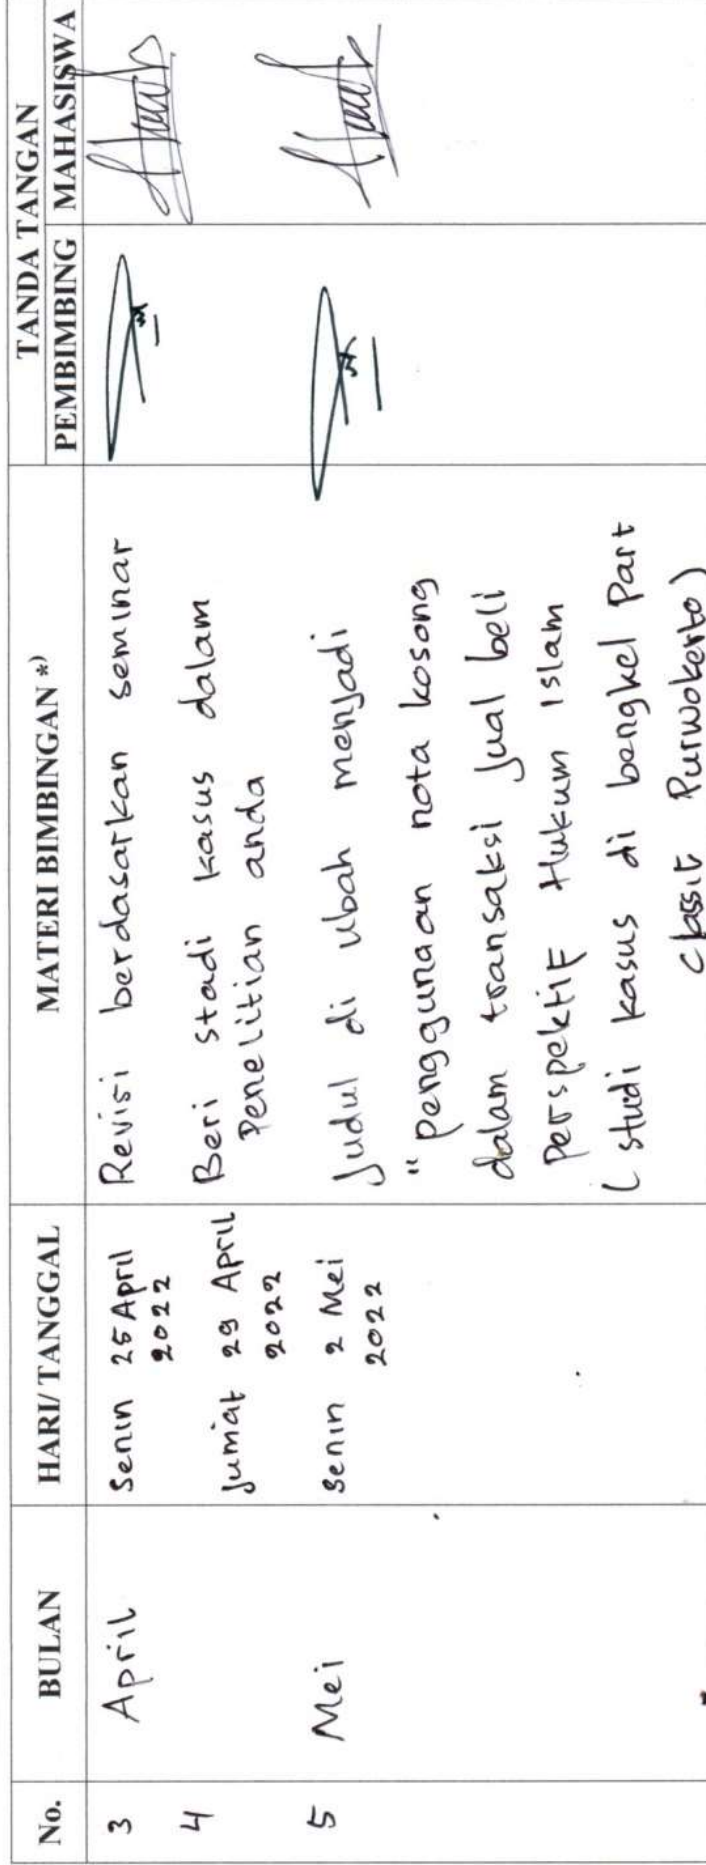 No. BULAN HARI/ TANGGAL MATERI BIMBINGAN *) TANDA TANGAN
PEMBIMBING MAHASISWA
3 April Senin 25 April Revisi berdasarkan seminar
2022
4 Jumat 29 April Beri stadi kasus dalam
2022 Penelitian anda
5 Mei Senin 2 Mei Judul di ubah menjadi
2022
"Penggunaan nota kosong
dalam transaksi jual beli
Perspektif Hukum Islam
(studi kasus di bengkel Part
Classic Purwokerto)